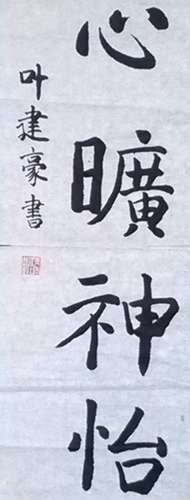 心曠神怡
叶建豪書